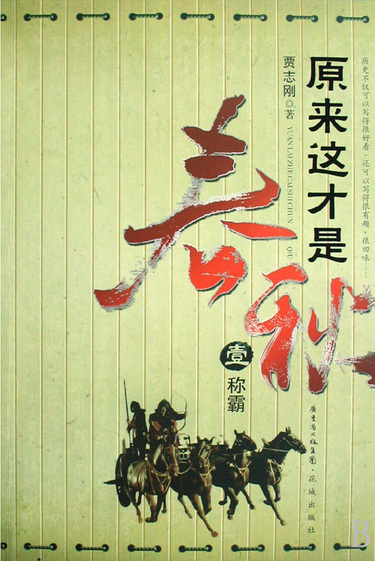 历史不仅可以写得很好看，还可以写得很有趣、很回味……
原来这才是
春秋
贾志刚◎著
YUAN LAI ZHE CAI SHI CHUN QIU
壹
称霸
广东省出版集团·花城出版社